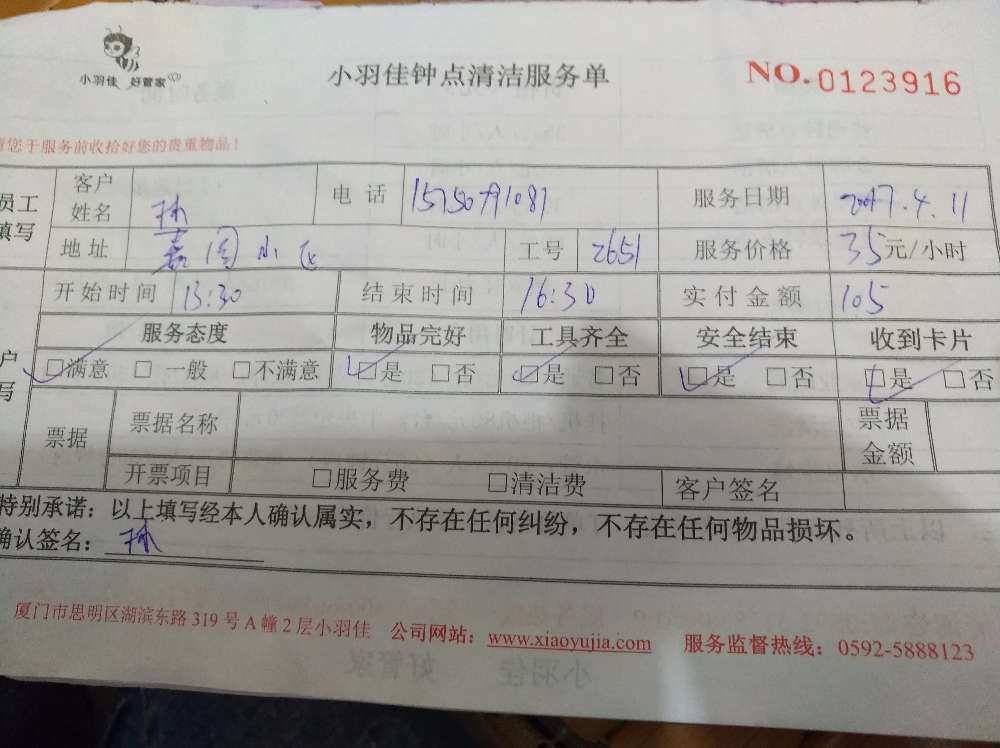 小羽佳 好管家
小羽佳钟点清洁服务单
NO.0123916
请您于服务前收拾好您的贵重物品！
员工填写 客户姓名 孙 电话 服务日期 2017.4.11
地址 小区 工号 2651 服务价格 35元/小时
开始时间 13:30 结束时间 16:30 实付金额 105
服务态度 物品完好 工具齐全 安全结束 收到卡片
户写 □满意 □一般 □不满意 □是 □否 □是 □否 □是 □否 □是 □否
票据 票据名称 票据金额
开票项目 □服务费 □清洁费 客户签名
特别承诺：以上填写经本人确认属实，不存在任何纠纷，不存在任何物品损坏。
确认签名：孙
厦门市思明区湖滨东路 319 号 A 幢 2 层小羽佳 公司网站：www.xiaoyujia.com 服务监督热线：0592-5888123